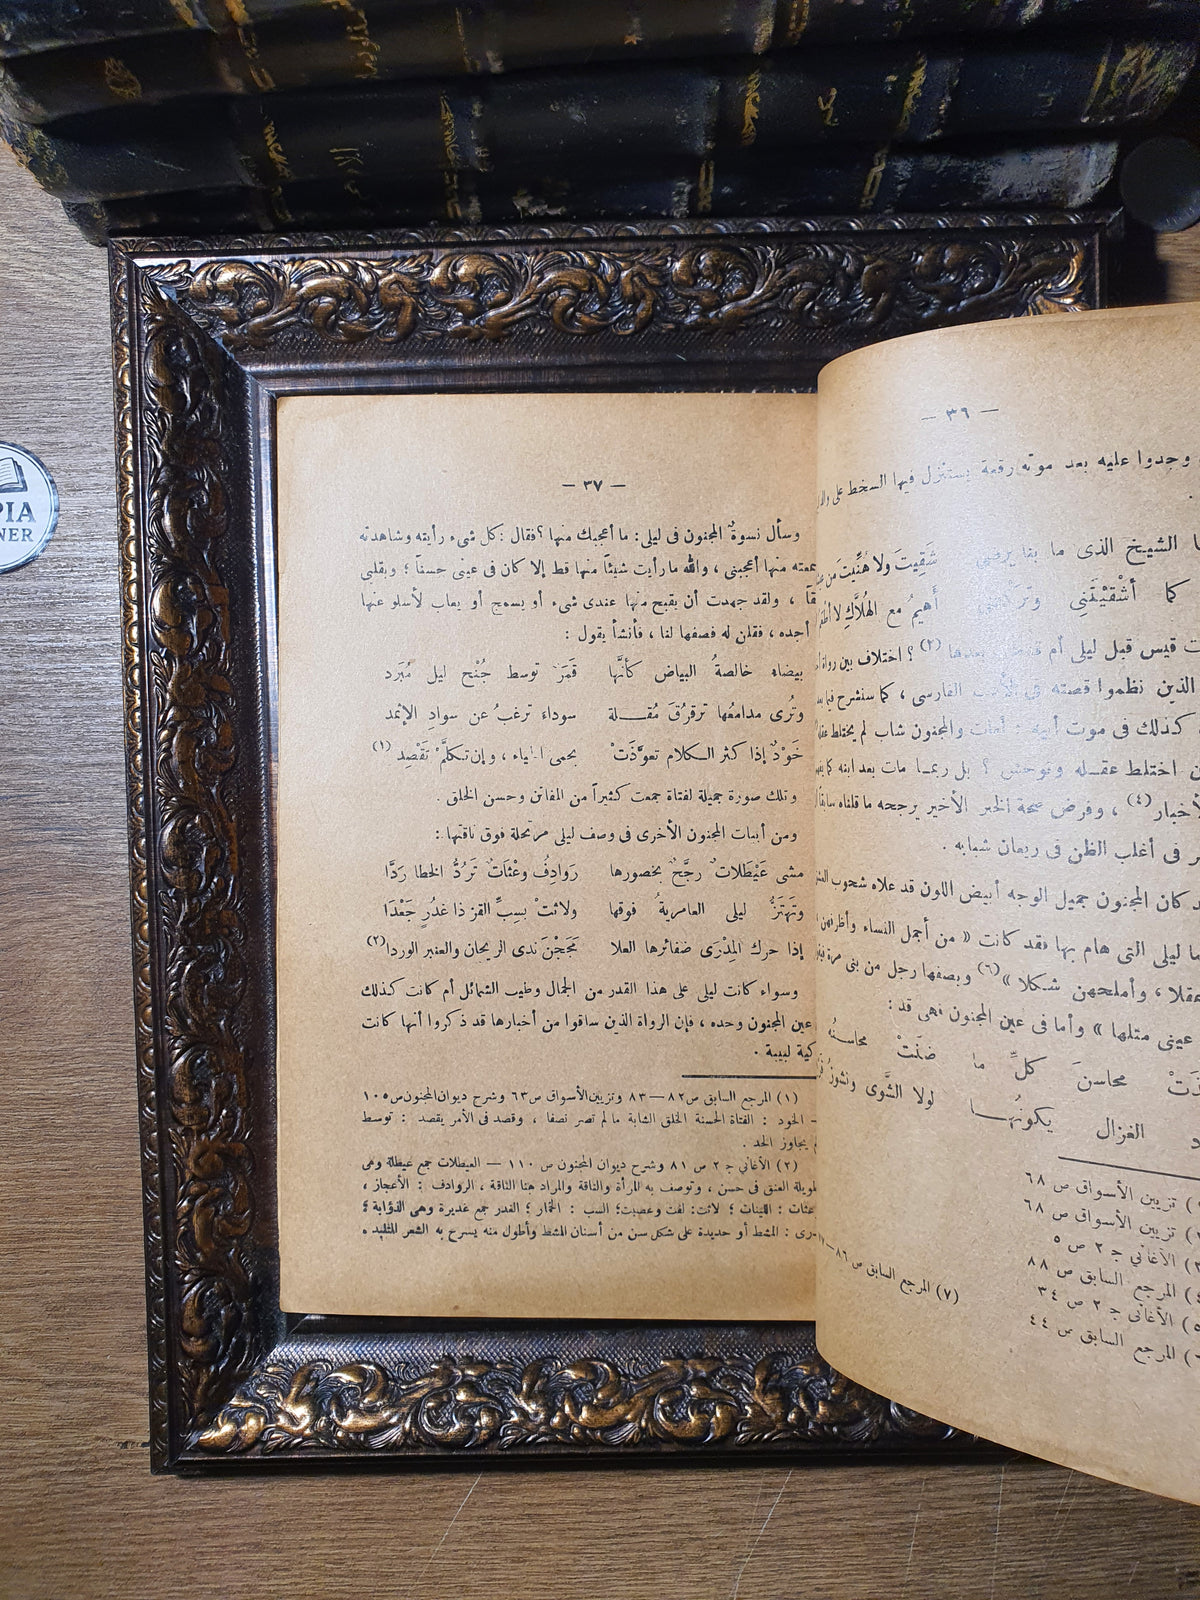 — ٣٧ —
وسأل نسوةٌ المجنون فى ليلى : ما أعجبك منها ؟ فقال : كل شىء رأيته وشاهدته
منها أعجبنى ، والله ما رأيت شيئاً منها قط إلا كان فى عينى حسناً ؛ وبقلبى
، ولقد جهدت أن يقبح منها عندى شىء أو يسمج أو يعاب لأسلو عنها
أجده ، فقلن له فصفها لنا ، فأنشأ يقول :
بيضاء خالصةُ البياض كأنَّها قَمَرٌ توسط جُنْح ليل مُبَرد
وتُرى مدامعُها ترقرُقَ مُقلة سوداءَ ترغبُ عن سوادِ الإثمد
خَوْدٌ إذا كثر الكلام تعوَّذَتْ بحمى الحياء ، وإن تكلَّمْ تَقْصِد (١)
وتلك صورة جميلة لفتاة جمعت كثيراً من المفاتن وحسن الخلق .
ومن أبيات المجنون الأخرى فى وصف ليلى مرتحلة فوق ناقتها :
مشى عَيْطَلات رجَّح بخصورها رَوادِفُ وعْثَات تَرَدُّ الخطا رَدَّا
وتَهْتَزُّ ليلى العامرية فوقها ولاثتْ بسِبِّ القز ذا غدُرٍ جَعْدَا
إذا حرك المِدْرَى ضفائرها العلا مَجَجْنَ ندى الريحان والعنبر الوردا (٢)
وسواء كانت ليلى على هذا القدر من الجمال وطيب الشمائل أم كانت كذلك
عين المجنون وحده ، فإن الرواة الذين ساقوا من أخبارها قد ذكروا أنها كانت
لبيبة .
(١) المرجع السابق ص ٨٢ — ٨٣ وتزيين الأسواق ص ٦٣ وشرح ديوان المجنون ص ١٠٥
— الخود : الفتاة الحسنة الخلق الشابة ما لم تصر نصفا ، وقصد فى الأمر يقصد : توسط
يجاوز الحد .
(٢) الأغاني ج ٢ ص ٨١ وشرح ديوان المجنون ص ١١٠ — العيطلات جمع عيطلة وهى
العنق فى حسن ، وتوصف به المرأة والناقة والمراد هنا الناقة ، الروادف : الأعجاز ،
: اللينات ؛ لاثت : لفت وعصبت ؛ السب : الخمار ؛ الغدر جمع غديرة وهى الذؤابة ؛
: المشط أو حديدة على شكل سن من أسنان المشط وأطول منه يسرح به الشعر المتلبد .
— ٣٩ —
وجدوا عليه بعد موته رقعة يستنزل فيها السخط على
الشيخ الذى ما بنا يرضى شَقِيتَ ولا هُنِّيتَ من
كما أشْقَيْتَنِي وتركتنى أَهيمُ مع الهُلاَّكِ لا
قيس قبل ليلى أم بعدها (٢) ؟ اختلاف بين رواة
الذين نظموا قصته فى الأدب الفارسى ، كما سنشرح
كذلك فى موت أبيه : والمجنون شاب لم يختلط
اختلط عقله وتوحش ؟ بل ربما مات بعد ابنه
(٤) ، وفرض صحة الخبر الأخير يرجحه ما قلناه سابقاً
فى أغلب الظن فى ريعان شبابه .
كان المجنون جميل الوجه أبيض اللون قد علاه شحوب
ليلى التى هام بها فقد كانت « من أجمل النساء وأظرفهن
عقلا ، وأملحهن شكلا » (٦) ويصفها رجل من بنى مرة
عينى مثلها » وأما فى عين المجنون فهى قد :
محاسنَ كلِّ ما ضَمَّتْ محاسنُه
الغزال يكونُها لولا الشَّوى ونشوزُ
تزيين الأسواق ص ٦٨
تزيين الأسواق ص ٦٨
الأغاني ج ٢ ص ٥
المرجع السابق ص ٨٨
الأغاني ج ٢ ص ٣٤
المرجع السابق ص ٤٤
(٧) المرجع السابق ص ٨٦
PIA
NER